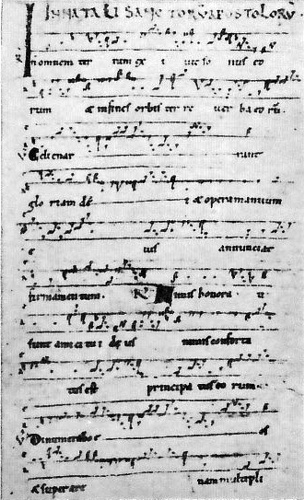 IN NATALI SANCTORŪ APOSTOLORŪ
N omnem ter ram ex i uit so nus eo
rum & infines orbis ter re uer ba eo rū
V Celi enar rant
glo riam dei & opera manuum
e ius annunciat
firmamentum. R Nimis honora ti
sunt amici tu i deus nimis conforta
tus est principa tus eo rum
V Dinumerabo e os
& super are nam multipli